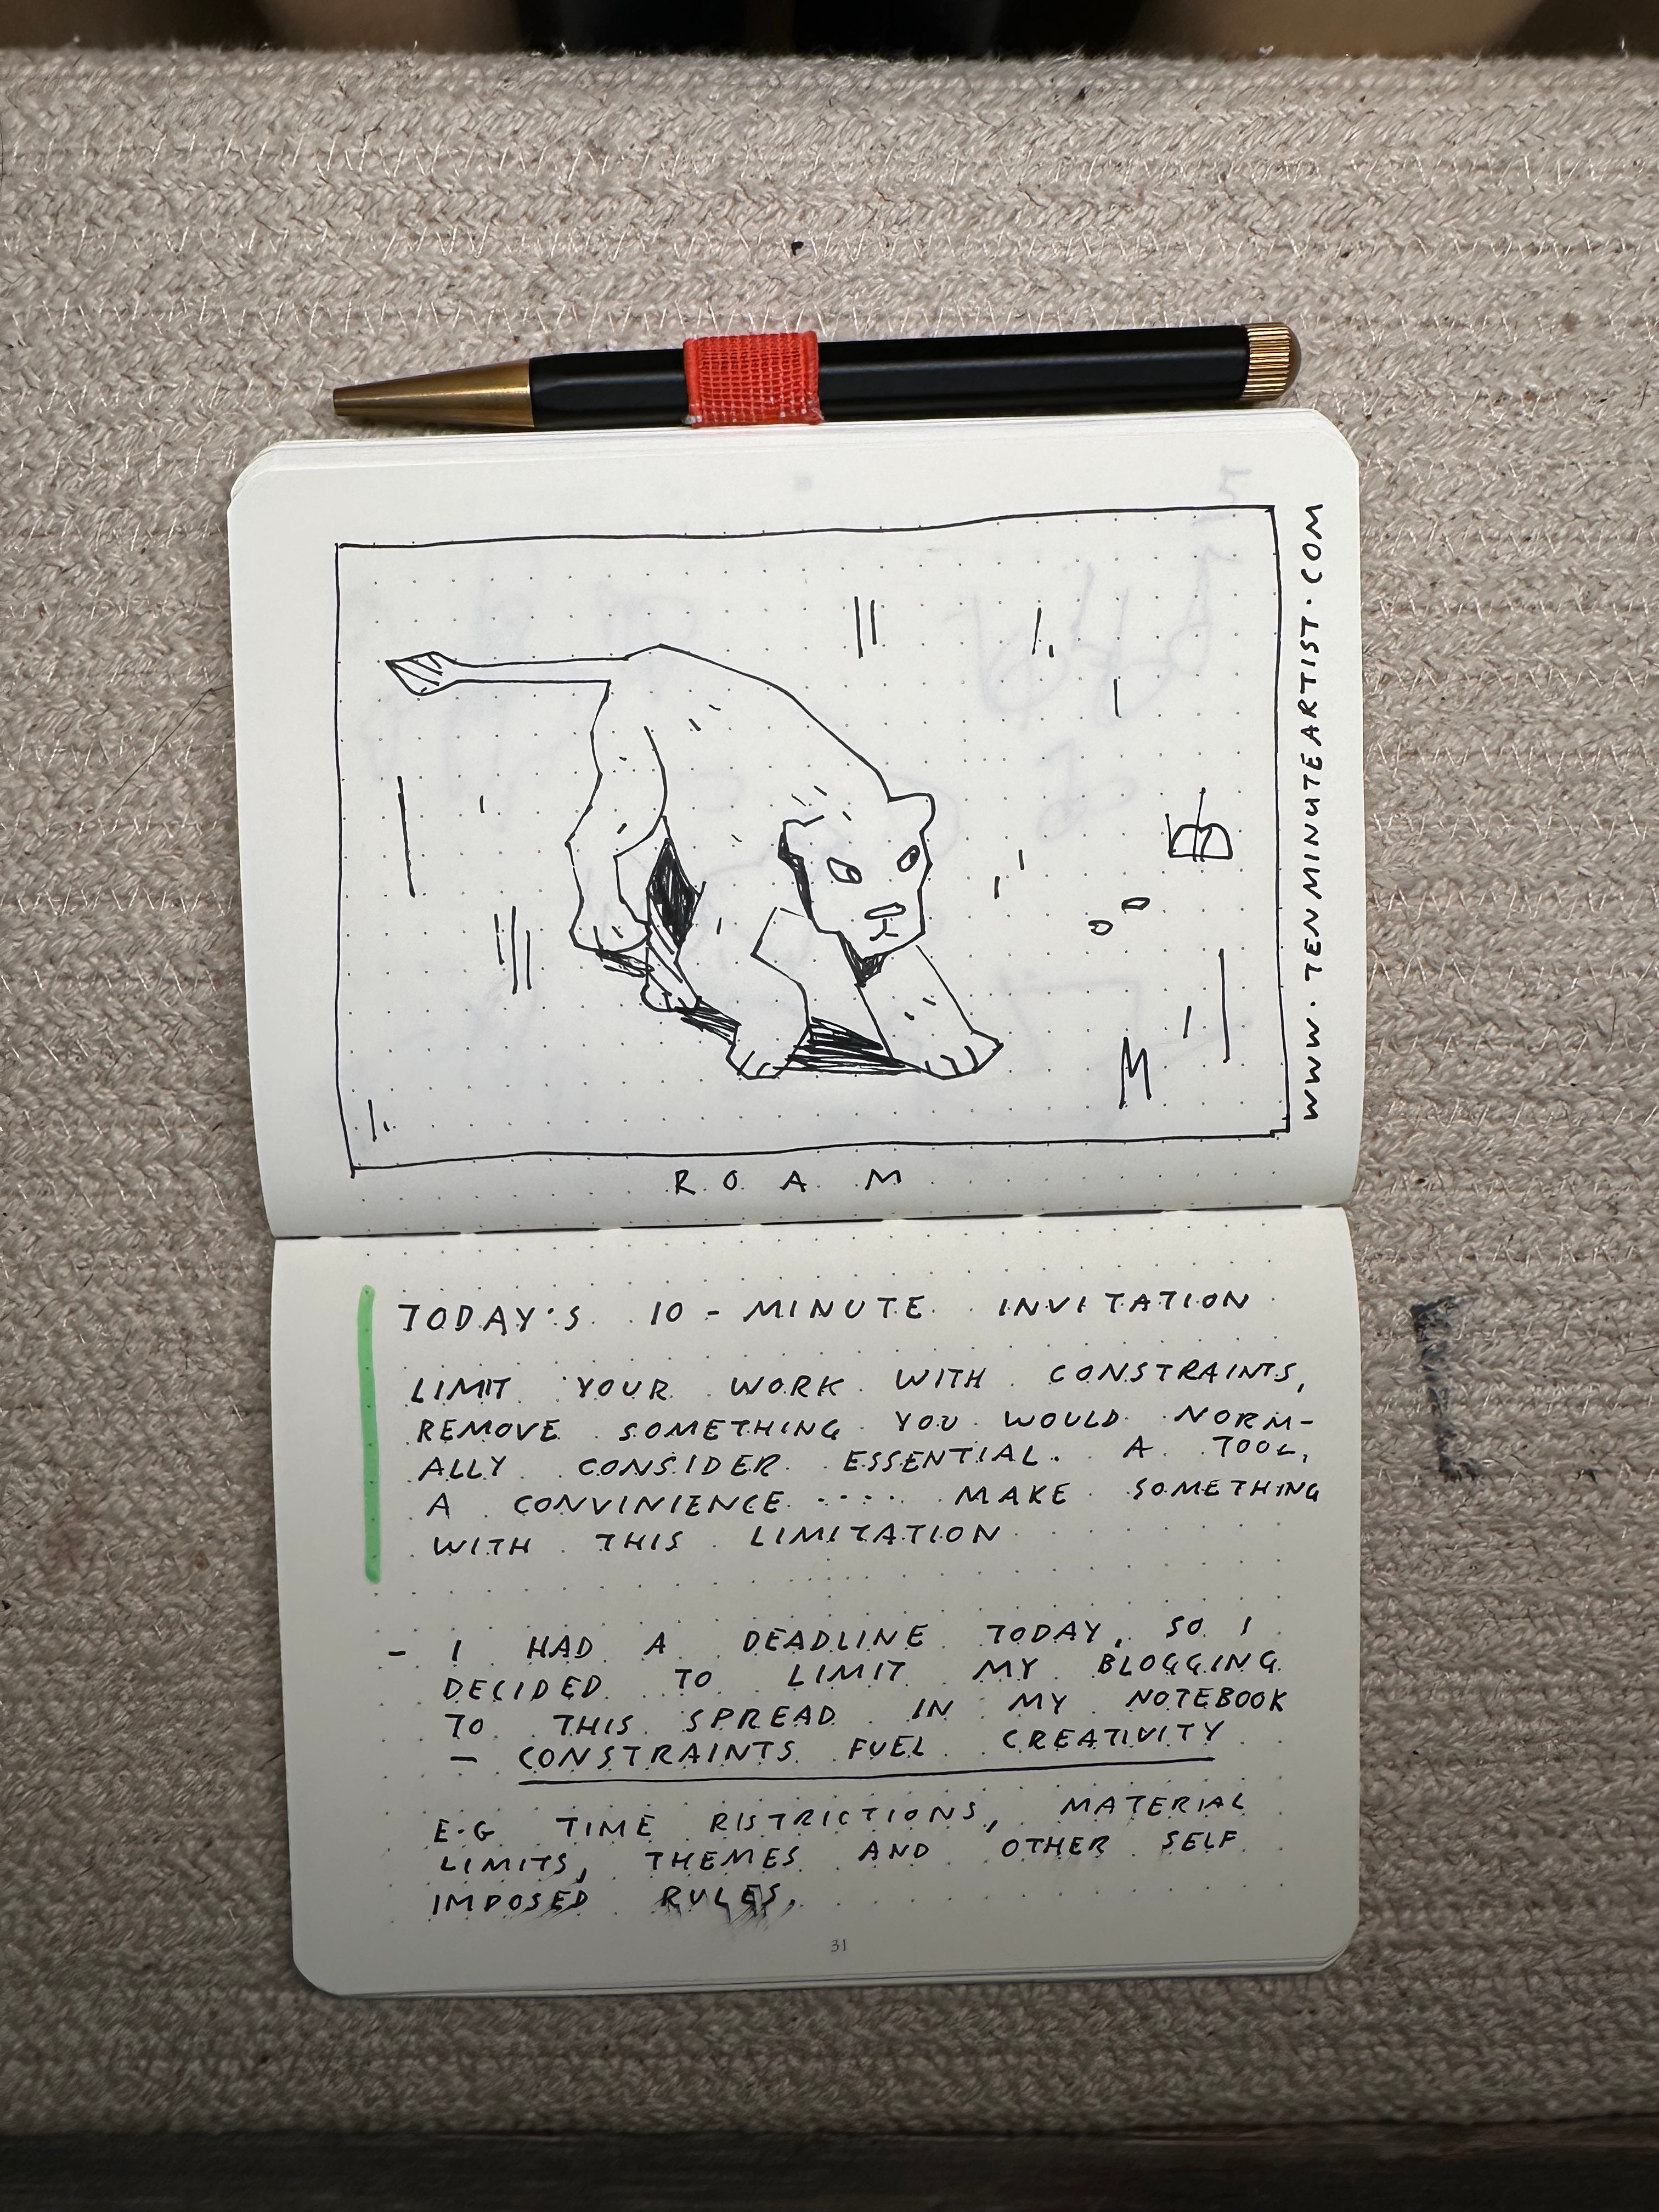 WWW.TENMINUTEARTIST.COM
ROAM
TODAY'S 10-MINUTE INVITATION
LIMIT YOUR WORK WITH CONSTRAINTS,
REMOVE SOMETHING YOU WOULD NORM-
ALLY CONSIDER ESSENTIAL. A TOOL,
A CONVINIENCE .... MAKE SOMETHING
WITH THIS LIMITATION
- I HAD A DEADLINE TODAY, SO I
DECIDED TO LIMIT MY BLOGGING
TO THIS SPREAD IN MY NOTEBOOK
- CONSTRAINTS FUEL CREATIVITY
E.G TIME RISTRICTIONS, MATERIAL
LIMITS, THEMES AND OTHER SELF
IMPOSED RULES.
31